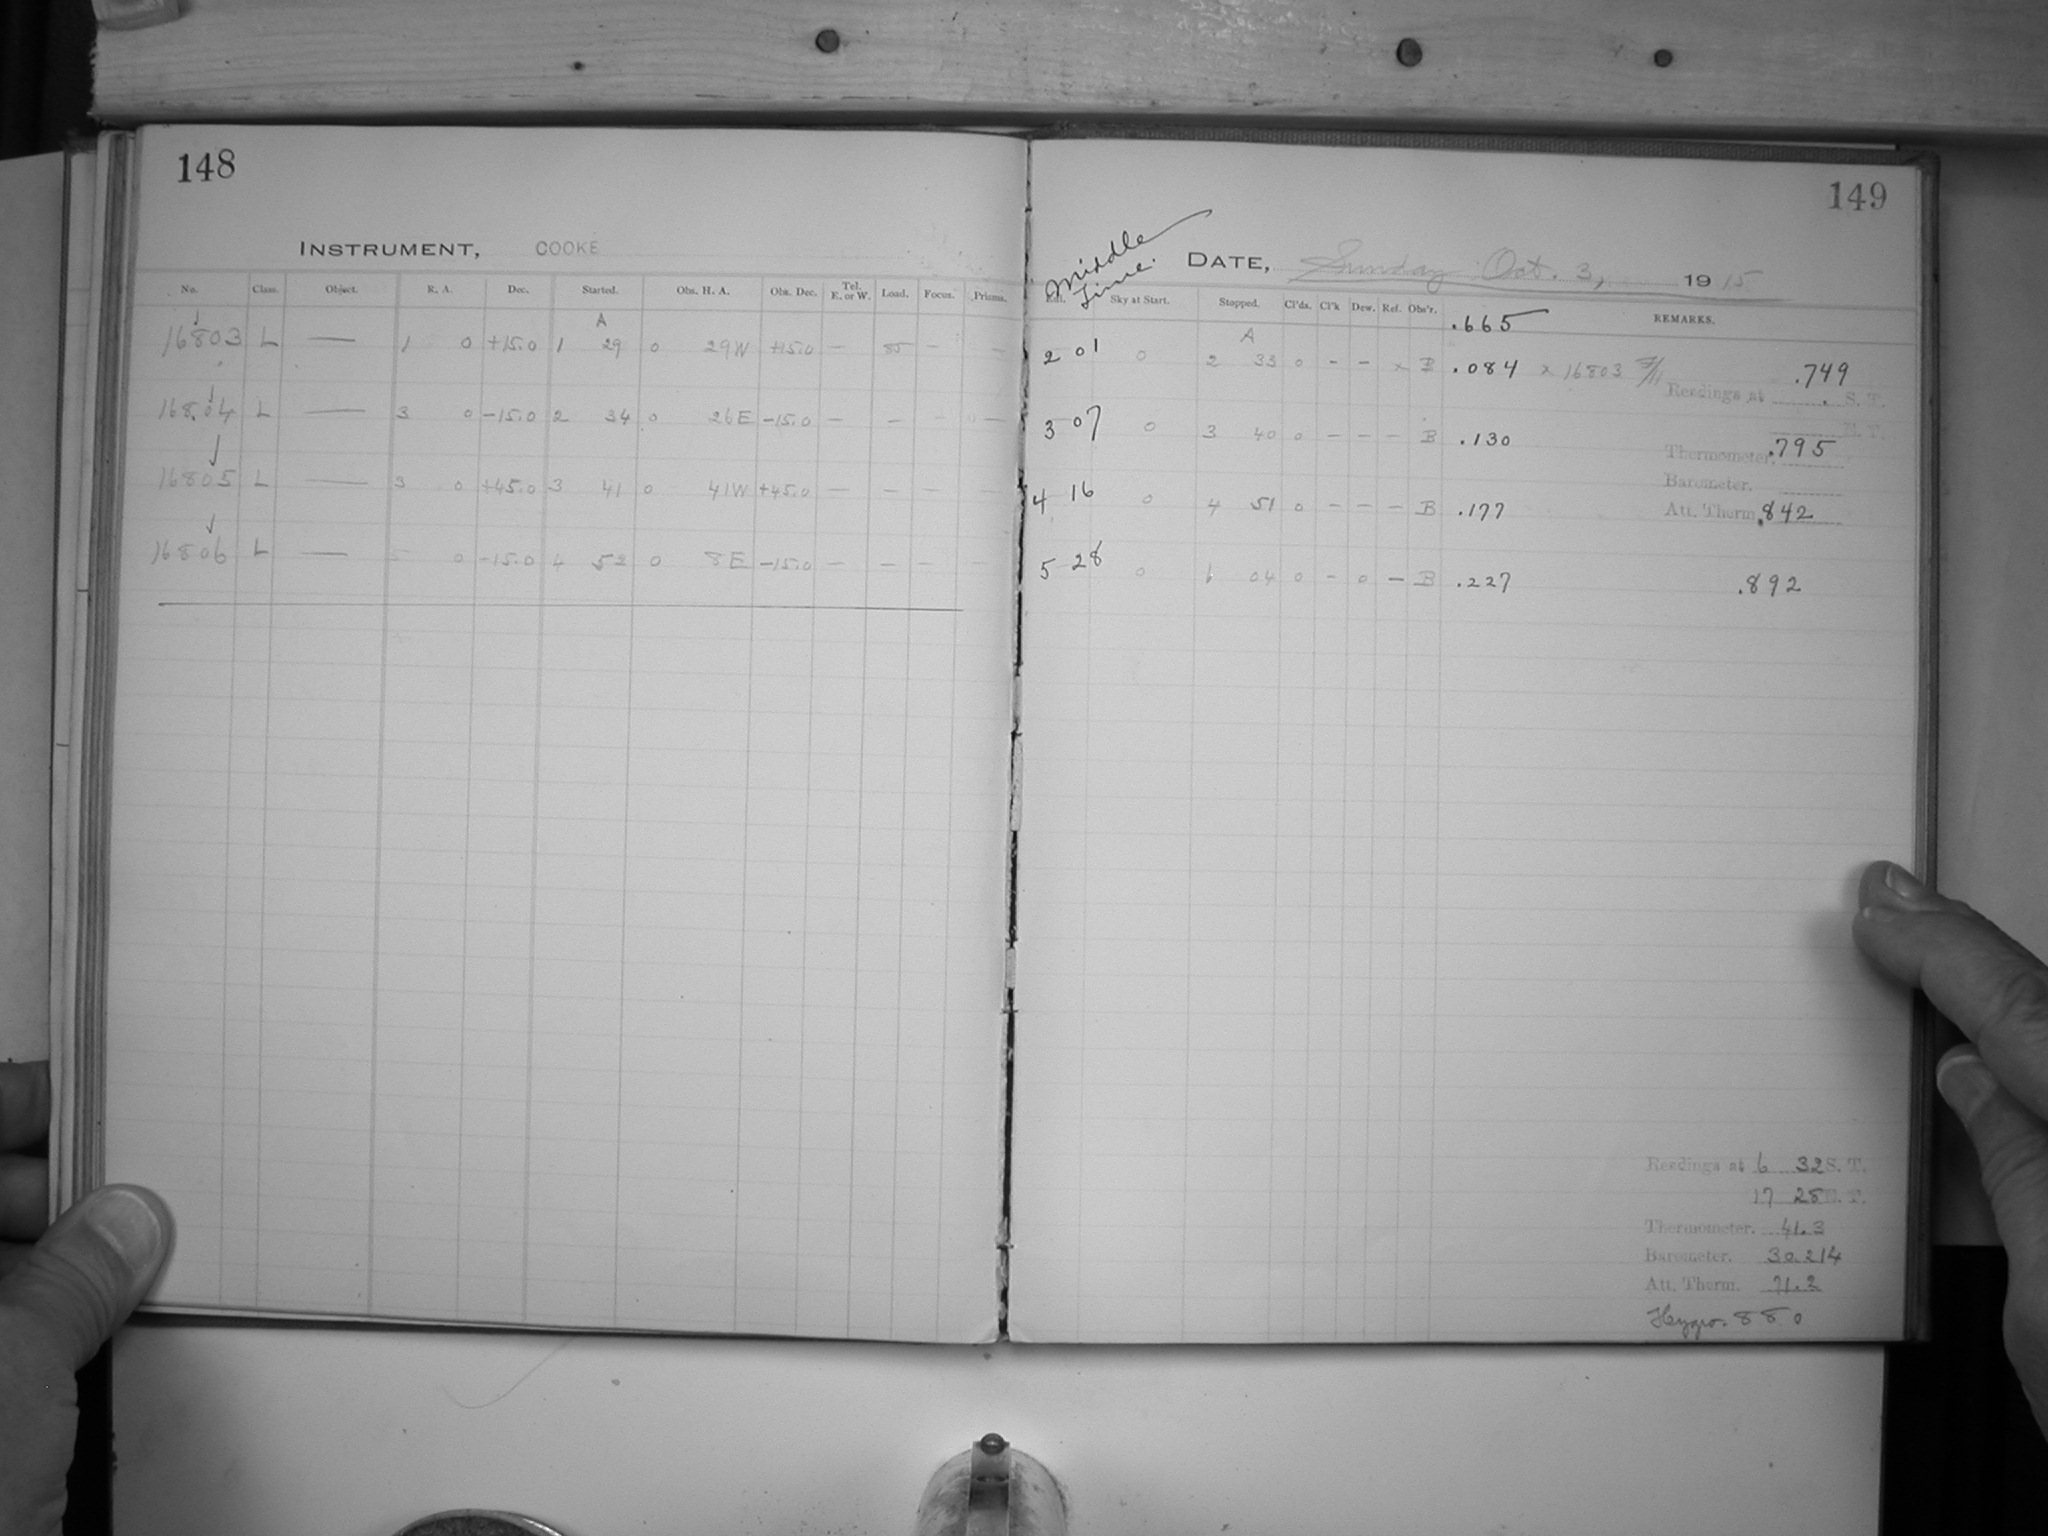 148
INSTRUMENT, COOKE
No. Class. Object. R. A. Dec. Started. Obs. H. A. Obs. Dec. Tel. E. or W. Load. Focus. Prisms.
A
16803 L — 1 0 +15.0 1 29 0 29W +15.0 — 85 — —
16804 L — 3 0 -15.0 2 34 0 26E -15.0 — — — —
16805 L — 3 0 +45.0 3 41 0 41W +45.0 — — — —
16806 L — 5 0 -15.0 4 52 0 8E -15.0 — — — —
149
Middle Time.
DATE, Sunday Oct. 3, 1915
Sky at Start. Stopped. Cl'ds. Cl'k Dew. Ref. Obs'r. REMARKS.
.665
A
2 01 0 2 33 0 — — x B .084 x 16803 .749
Readings at . S. T.
3 07 0 3 40 0 — — — B .130 .795
Thermometer.
Barometer.
4 16 0 4 51 0 — — — B .177 .842
Att. Therm.
5 28 0 6 04 0 — 0 — B .227 .892
Readings at 6 32 S. T.
17 28 E. T.
Thermometer. 41.3
Barometer. 30.214
Att. Therm. 71.2
Hygro. 88.0